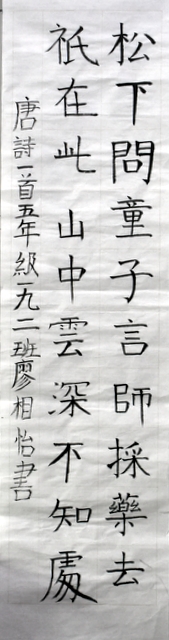 松下問童子言師採藥去
祇在此山中雲深不知處
唐詩一首五年級一九二班廖相怡書